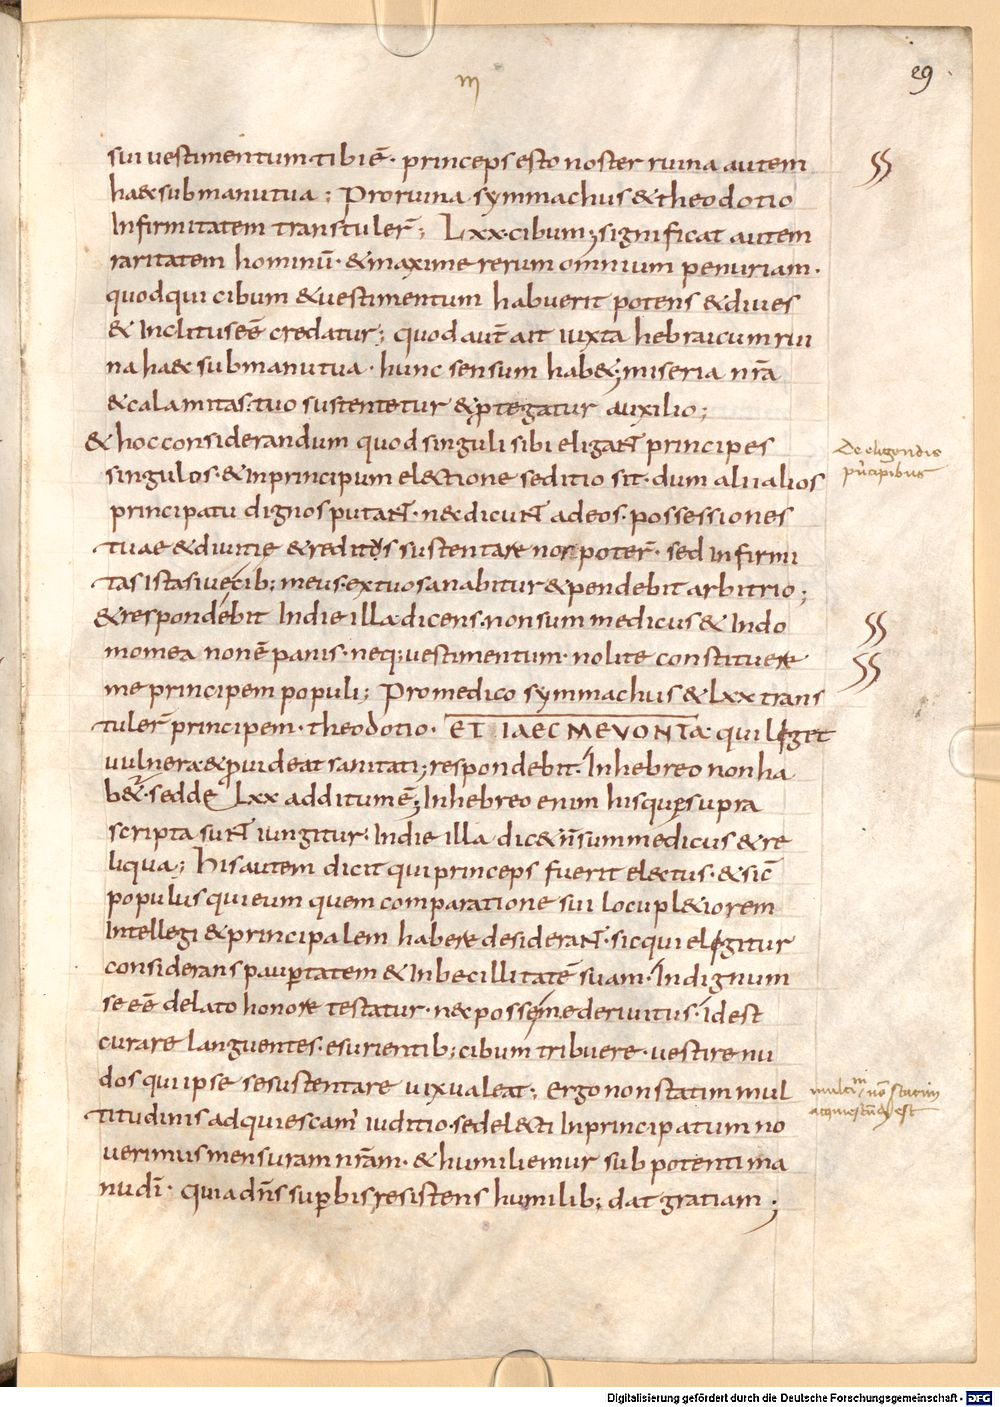 m
29
sui uestimentum· tibi ē̄· princeps esto noster ruina autem
haec sub manu tua; Pro ruina symmachus & theodotio
Infirmitatem transtuler̄; Lxx· cibum; significat autem
raritatem hominū· & maxime rerum omnium penuriam·
quod qui cibum & uestimentum habuerit potens & diues
& Inclitus eē credatur; quod aut̄ ait iuxta hebraicum rui
na haec sub manu tua· hunc sensum hab&; miseria nr̄a
& calamitas· tuo sustentetur & ꝓtegatur auxilio;
& hoc considerandum quod singuli sibi eligant principes
singulos· & In principum electione seditio sit· dum alii alios
principatu dignos putant· nec dicunt ad eos· possessiones
tuae & diuitię & reditus sustentare nos poter̄· sed Infirmi
tas ista siue cib; meus· ex tuo sanabitur & pendebit arbitrio;
& respondebit In die illa dicens· non sum medicus & In do
mo mea non ē panis· neq; uestimentum· nolite constituere
me principem populi; Pro medico symmachus & Lxx trans
tuler̄ principem· theodotio·
qui leget
uulnera & ꝓuideat sanitati; respondebit· In hebreo non ha
b&ur· sed de Lxx additum ē; In hebreo enim his quę supra
scripta sunt iungitur· In die illa dic& n̄ sum medicus & re
liqua; His autem dicit qui princeps fuerit electus· & sic̄
populus qui eum quem comparatione sui locupl&iorem
Intellegi & principalem habere desiderant· sic qui eligitur
considerans pauꝑtatem & Inbecillitatē suam· Indignum
se eē delato honore testatur· nec posse mederi uitiis· id est
curare languentes· esurientib; cibum tribuere· uestire nu
dos qui ipse se sustentare uix ualeat; Ergo non statim mul
titudinis adquiescam' iuditio· sed electi In principatum no
uerimus mensuram nr̄am· & humiliemur sub potenti ma
nu dī· quia dn̄s suꝑbis resistens humilib; dat gratiam;
De eligendis
pͥncipibus
statim
est
Digitalisierung gefördert durch die Deutsche Forschungsgemeinschaft - DFG